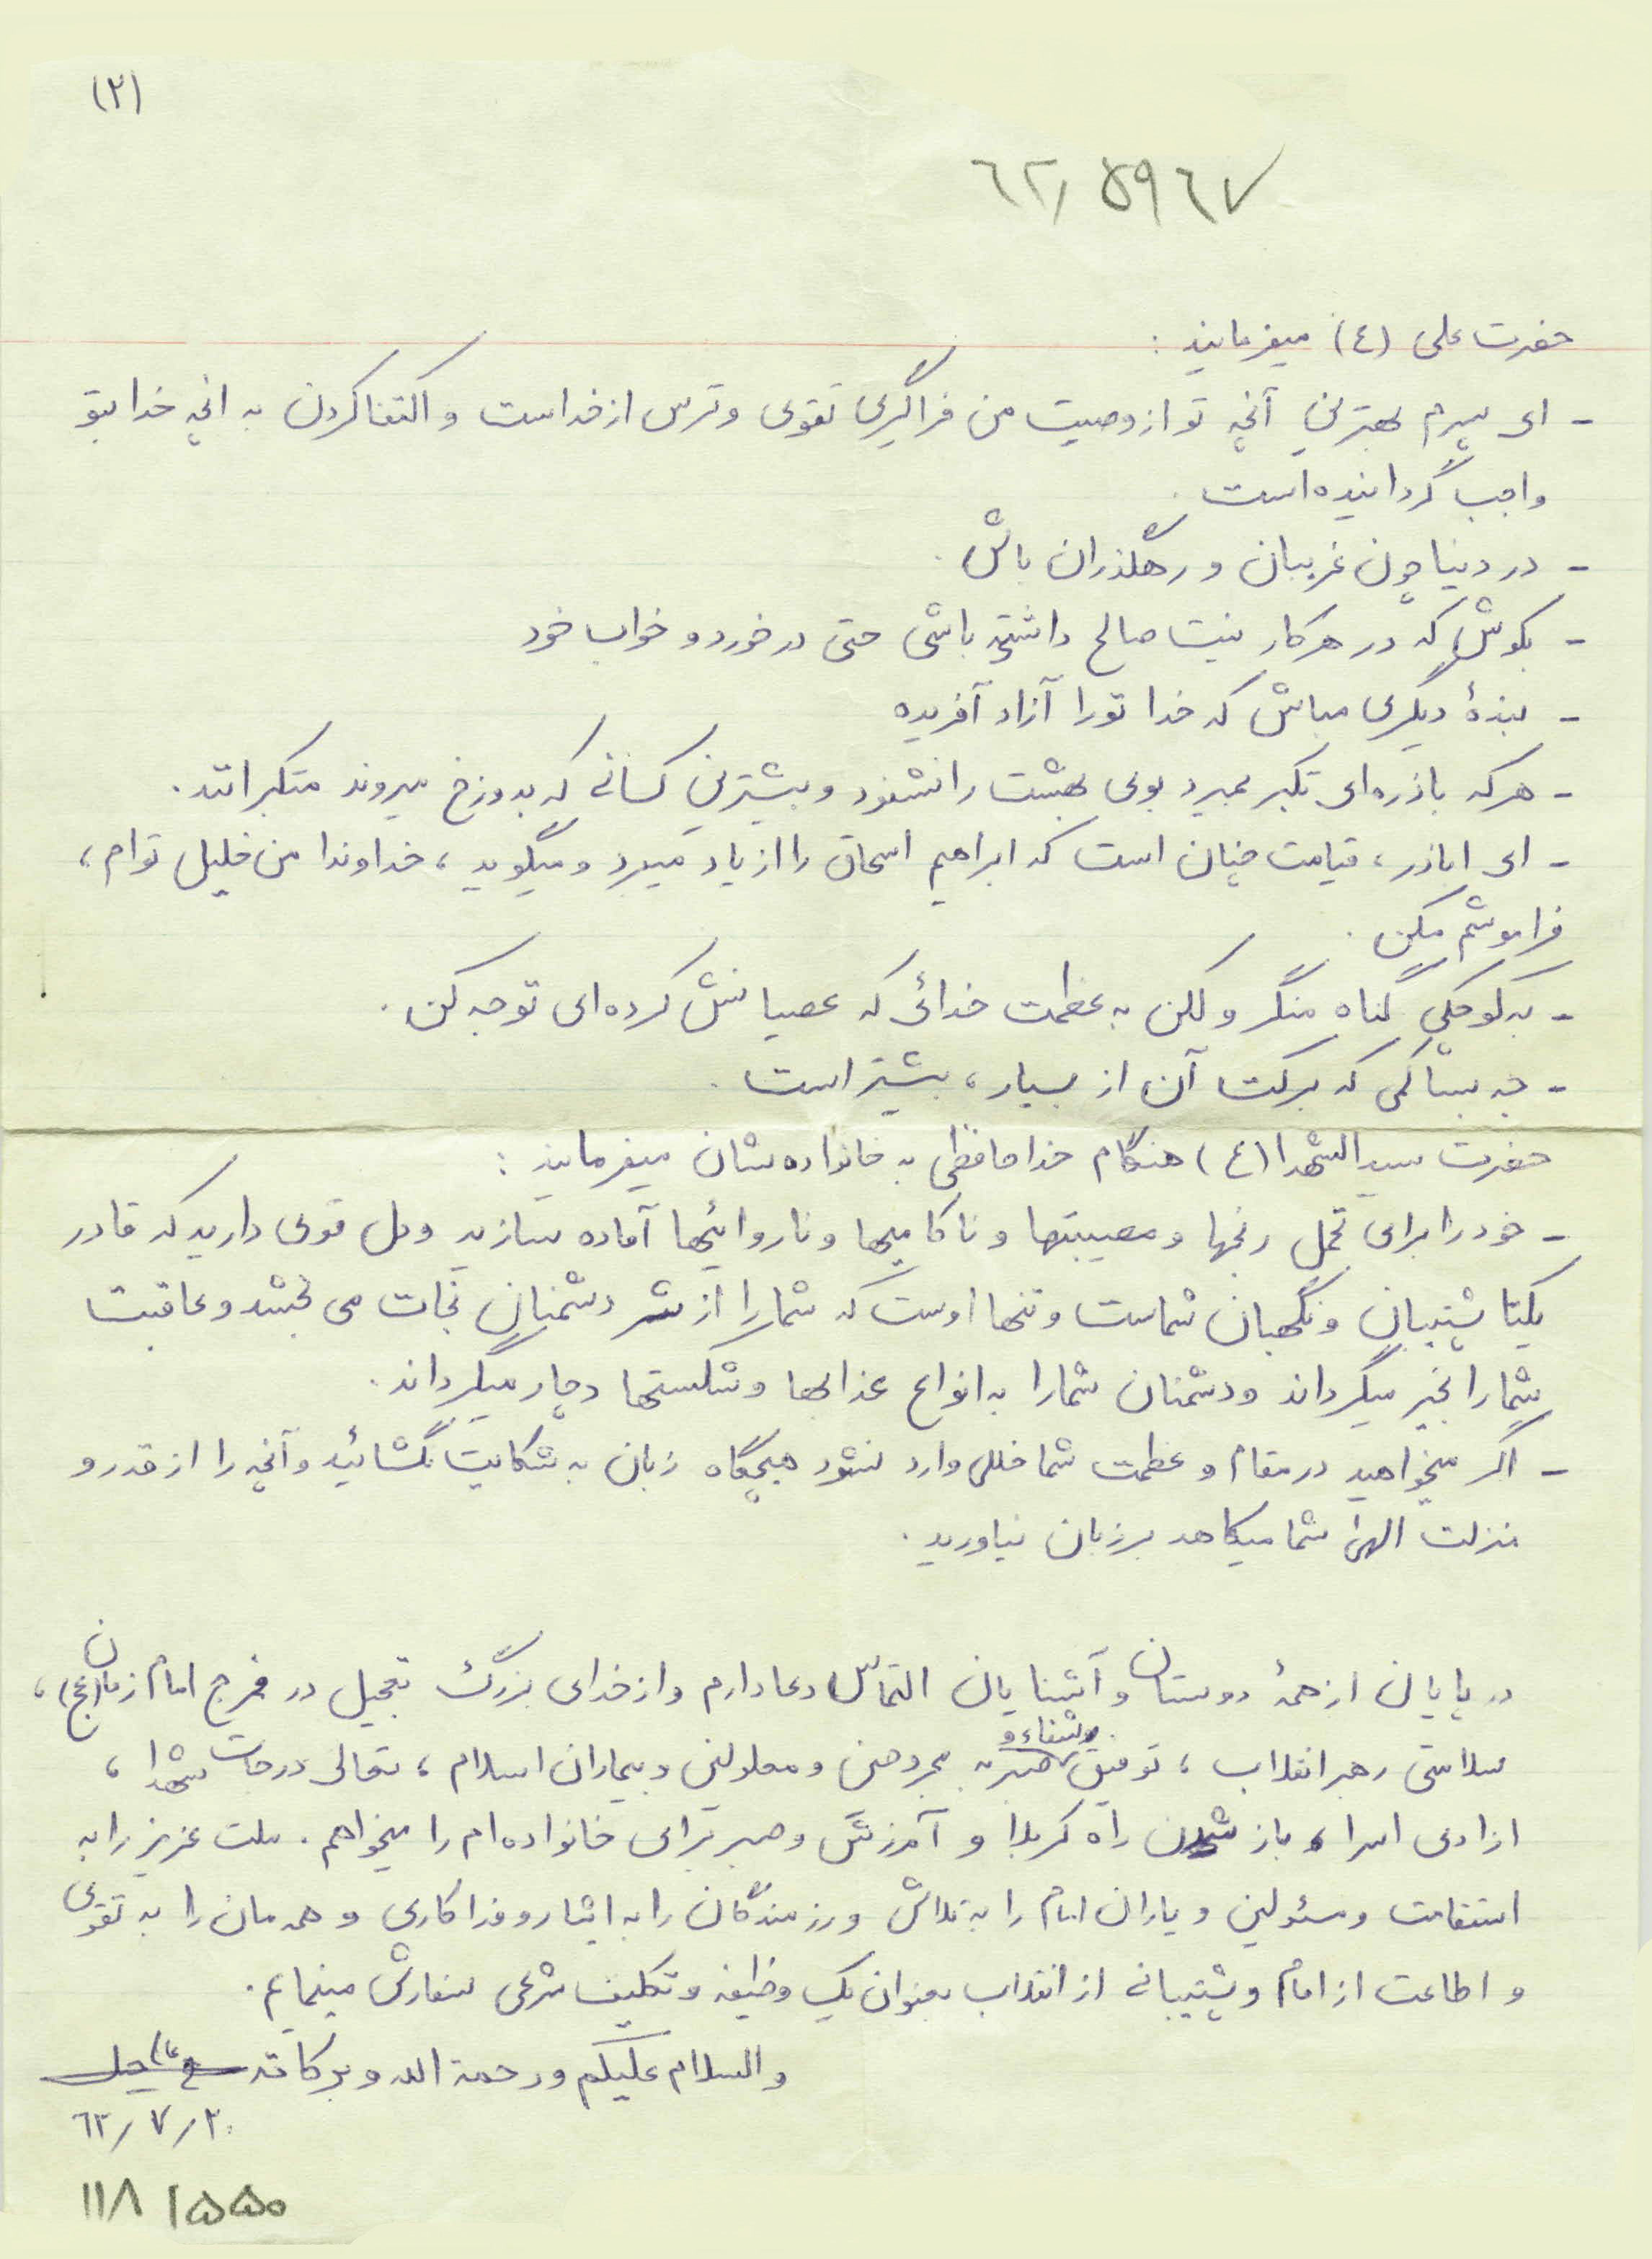 (۲)
۶۲/۵۹۶۷
حضرت علی (ع) میفرمایند :
- ای پسرم بهترین آنچه تو از وصیت من فراگیری تقوی و ترس از خداست و اکتفا کردن به انچه خدا بتو
واجب گردانیده است .
- در دنیا چون غریبان و رهگذران باش .
- بکوش که در هر کار نیت صالح داشته باشی حتی در خورد و خواب خود
- بندهٔ دیگری مباش که خدا تو را آزاد آفریده
- هرکه با ذره‌ای تکبر بمیرد بوی بهشت را نشنود و بیشترین کسانی که بدوزخ میروند متکبرانند .
- ای اباذر ، قیامت چنان است که ابراهیم اسحاق را از یاد میبرد و میگوید ، خداوندا من خلیل توام ،
فراموشم مکن .
- به کوچکی گناه منگر ولکن به عظمت خدائی که عصیانش کرده‌ای توجه کن .
- چه بسا کمی که برکت آن از بسیار ، بیشتر است .
حضرت سیدالشهدا (ع) هنگام خداحافظی به خانواده‌شان میفرمایند :
- خود را برای تحمل رنجها و مصیبتها و ناکامیها و نارواییها آماده سازید و دل قوی دارید که قادر
یکتا پشتیبان و نگهبان شماست و تنها اوست که شما را از شر دشمنان نجات می بخشد و عاقبت
شما را بخیر میگرداند و دشمنان شما را به انواع عذابها و شکستها دچار میگرداند .
- اگر میخواهید در مقام و عظمت شما خللی وارد نشود هیچگاه زبان به شکایت نگشائید و آنچه را از قدر و
منزلت الهی شما میکاهد بر زبان نیاورید .
در پایان از همهٔ دوستان و آشنایان التماس دعا دارم و از خدای بزرگ تعجیل در فرج امام زمان (عج) ،
سلامتی رهبر انقلاب ، توفیق شفاء و صبر به مجروحین و معلولین و بیماران اسلام ، تعالی درجات شهدا ،
ازادی اسرا ، باز شدن راه کربلا و آمرزش و صبر برای خانواده‌ام را میخواهم . ملت عزیز را به
استقامت و مسئولین و یاران امام را به تلاش و رزمندگان را به ایثار و فداکاری و همه‌مان را به تقوی
و اطاعت از امام و پشتیبانی از انقلاب بعنوان یک وظیفه و تکلیف شرعی سفارش مینمایم .
والسلام علیکم و رحمة الله و برکاته
۶۲/۷/۲۰
۱۱۸ ۱۵۵۰